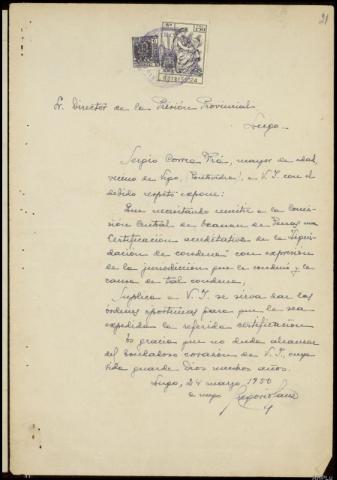 21
Sr. Director de la Prisión Provincial
Lugo.
Sergio Correa mayor de edad,
vecino de Vigo, Pontevedra, a V.I. con el
debido respeto expone:
Que necesitando remitir a la Comi-
sión Central de Examen de Penas una
Certificación acreditativa de la "liqui-
dación de condena" con expresión
de la jurisdicción que le condenó y la
causa de tal condena,
Suplica a V.I. se sirva dar las
órdenes oportunas para que le sea
expedida la referida certificación
Es gracia que no duda alcanzar
del bondadoso corazón de V.I. cuya
vida guarde Dios muchos años.
Lugo, 24 marzo
a ruego